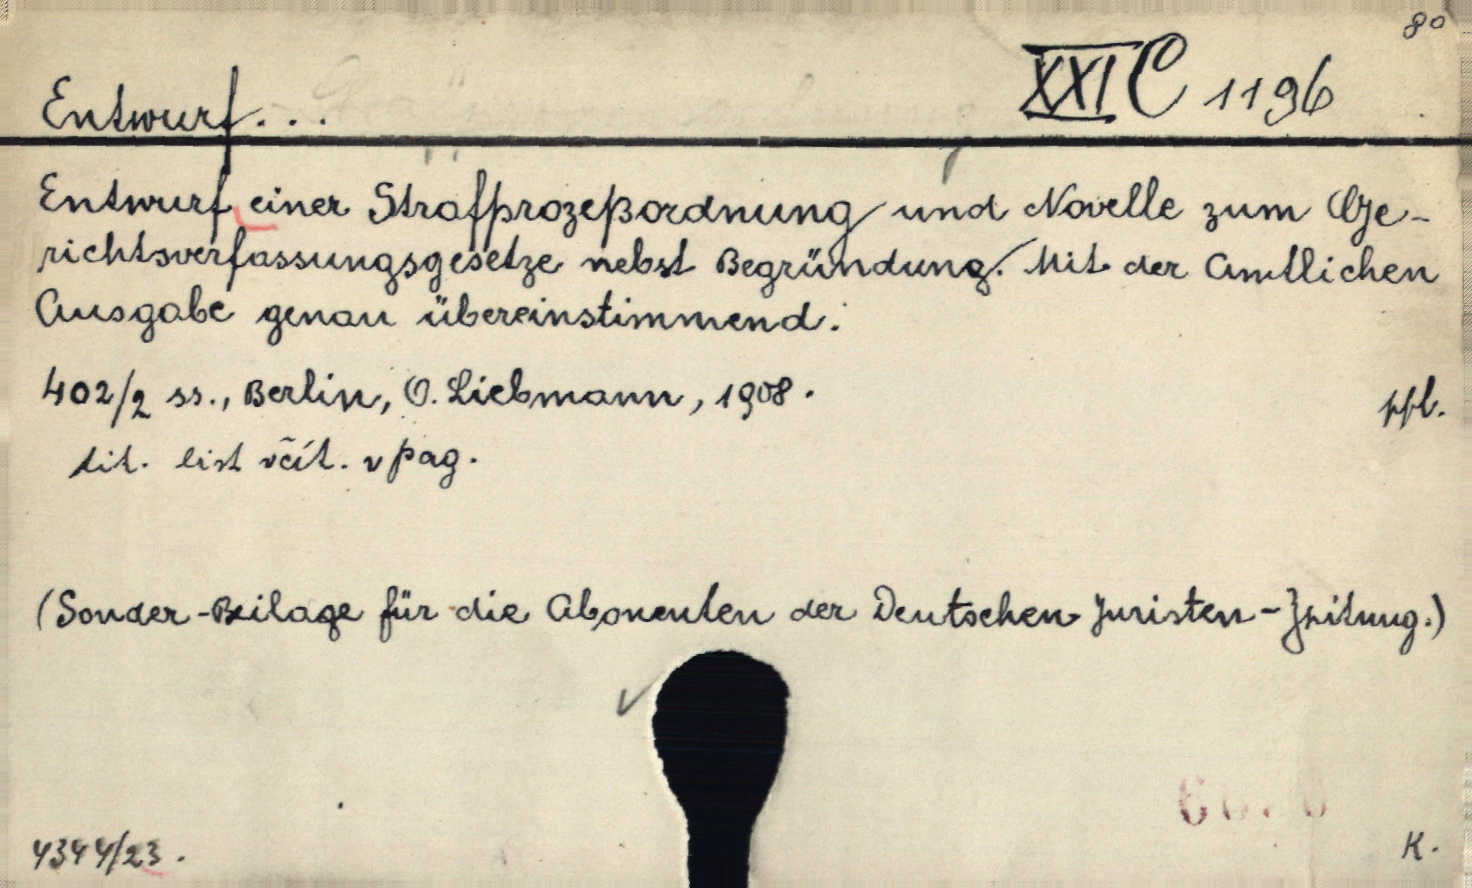 8°
Entwurf... XXI C 1196
Entwurf einer Strafprozeßordnung und Novelle zum Ge-
richtsverfassungsgesetze nebst Begründung. Mit der Amtlichen
Ausgabe genau übereinstimmend.
402/2 ss., Berlin, O. Liebmann, 1908. ppl.
tit. list včít. v pag.
(Sonder-Beilage für die Abonenten der Deutschen Juristen-Zeitung.)
4344/23. K.